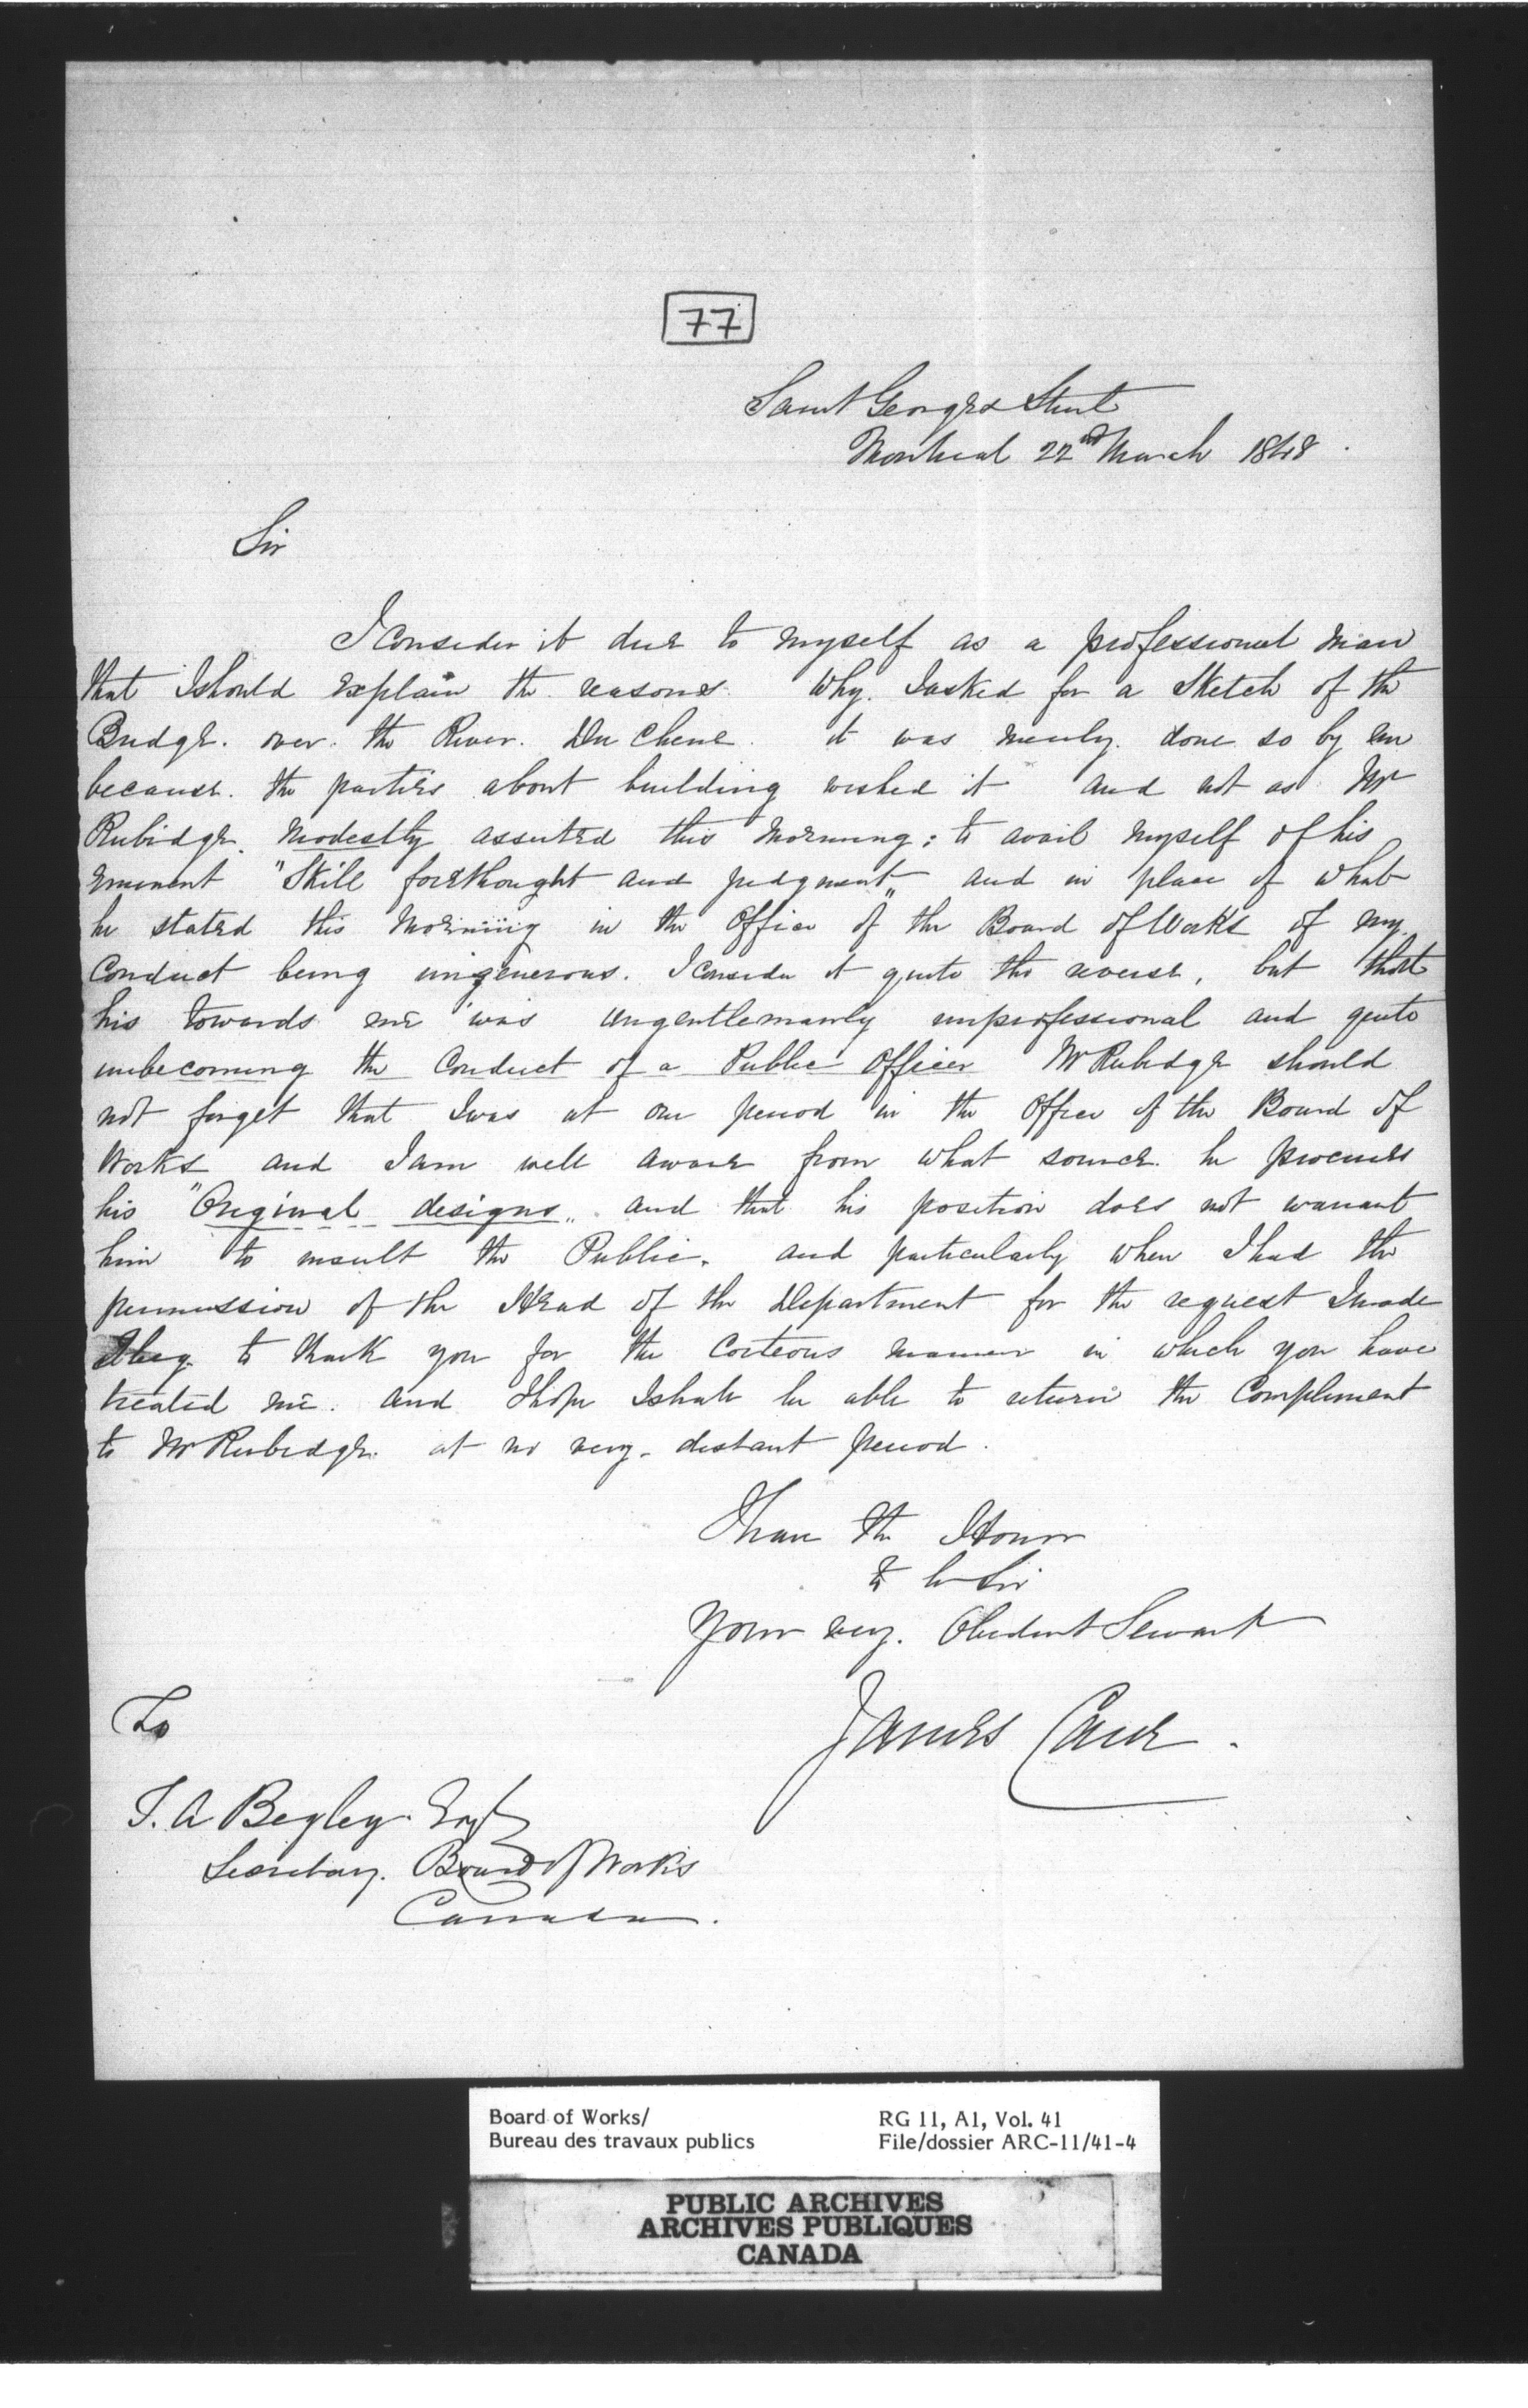 77
Saint Georges Street
Montreal 22nd March 1848.
Sir
I consider it due to myself as a professional man
that I should explain the reasons why I asked for a Sketch of the
Bridge over the River Du Chene. it was merely done so by me
because the parties about building wished it and not as Mr
Rubidge modestly asserted this morning; to avail myself of his
eminent "Skill forethought and judgment" and in place of what
he stated this morning in the Office of the Board of Works of my
Conduct being ungenerous. I consider it quite the reverse, but that
his towards me was ungentlemanly unprofessional and quite
unbecoming the Conduct of a Public Officer Mr Rubidge should
not forget that I was at one period in the Office of the Board of
Works and I am well aware from what source he procures
his "Original designs" and that his position does not warrant
him to insult the Public. and particularly when I had the
permission of the Head of the Department for the request I made
I beg to thank you for the Corteous manner in which you have
treated me. and I hope I shall be able to return the Compliment
to Mr Rubidge at no very distant period.
I have the Honor
to be Sir
Your very Obedient Servant
James
To
T. A Begley Esqr
Secretary Board of Works
Canada.
Board of Works/
Bureau des travaux publics
RG 11, A1, Vol. 41
File/dossier ARC-11/41-4
PUBLIC ARCHIVES
ARCHIVES PUBLIQUES
CANADA